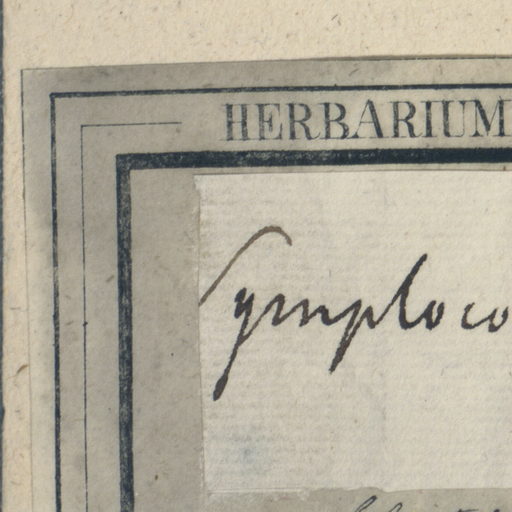 HERBARIUM
Symploco